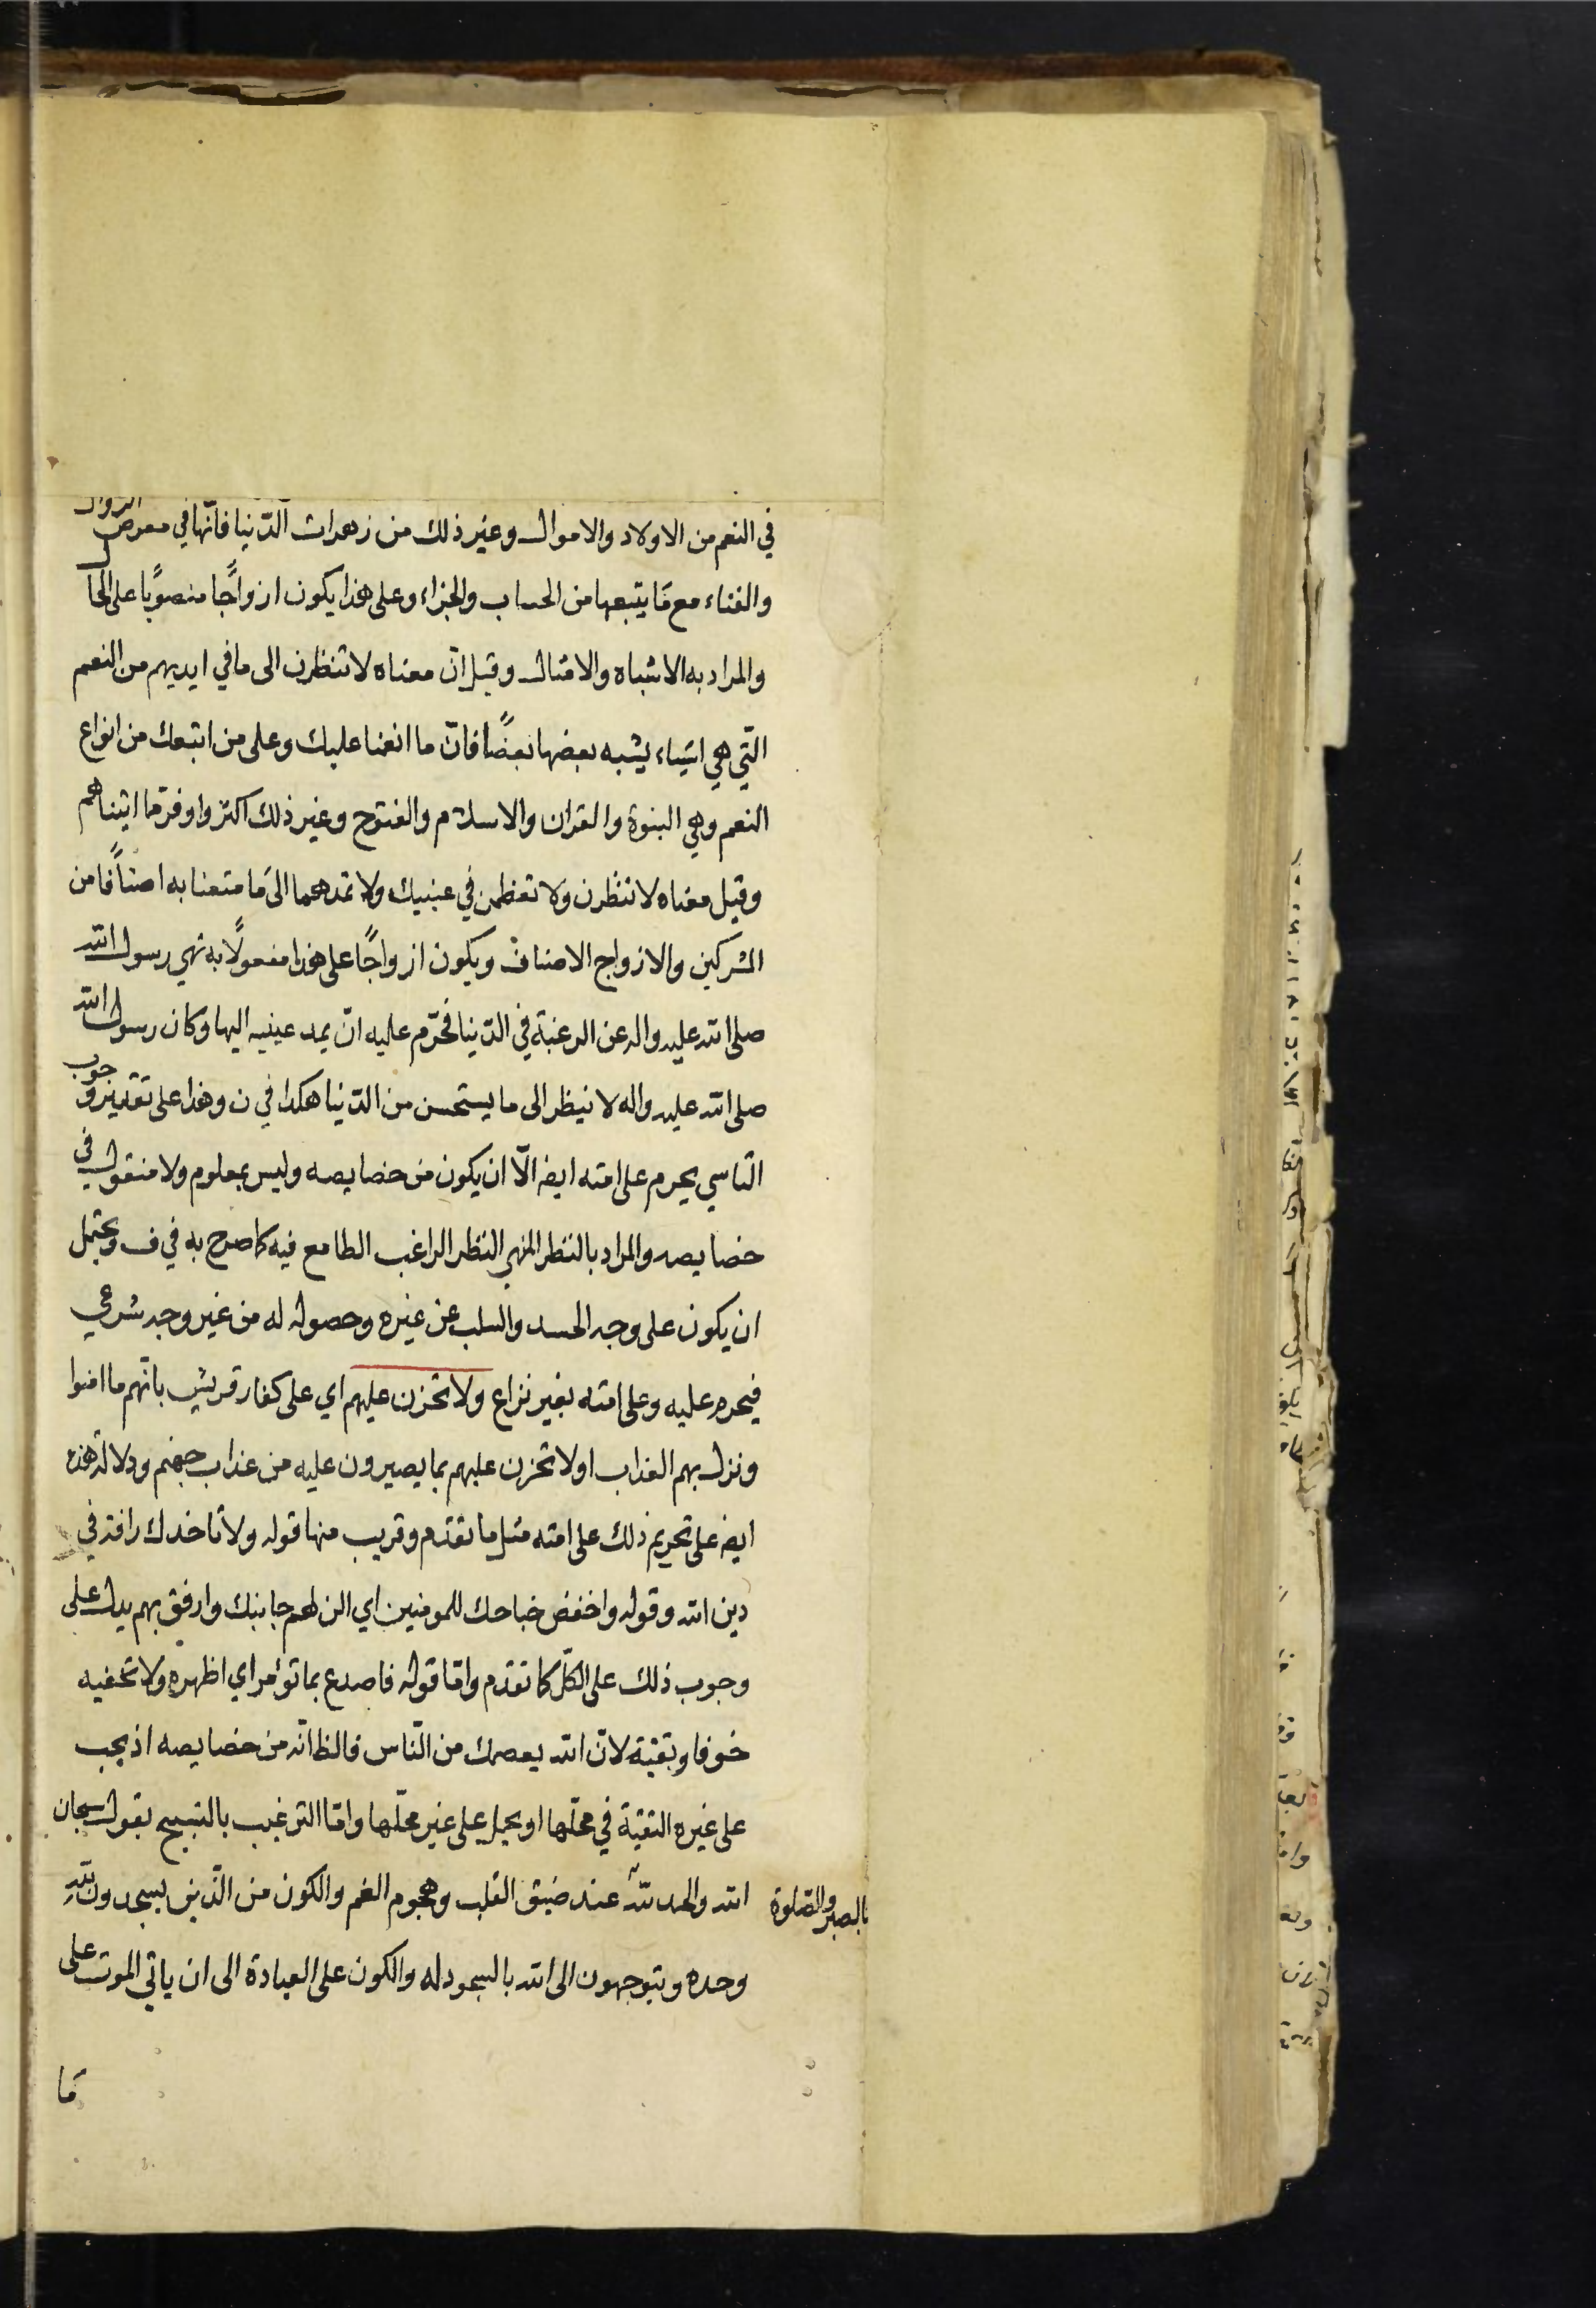 في النعم من الاولاد والاموال وغير ذلك من زهرات الدّنيا فانّها في معرض الزوال
والفناء مع مَا يتبعها من الحساب والجزاء وعلى هذا يكون ازواجًا منصوبًا على الحال
والمراد به الاشباه والامثال وقيل انّ معناه لا تنظرن الى ما في ايديهم من النعم
الّتي هي اشياء يشبه بعضها بعضًا فانّ ما انعمنا عليك وعلى من اتبعك من انواع
النعم وهي النبوة والقران والاسلام والفتوح وغير ذلك اكثر واوفر مّا اتيناهم
وقيل معناه لا تنظرن ولا تعظمن في عينيك ولا تمدهما الى مَا متعنا به اصنافًا من
المشركين والازواج الاصناف ويكون ازواجًا على هذا مفعولًا به نهي رسول الله
صلى الله عليه واله عن الرغبة في الدّنيا فحرّم عليه انّ يمد عينيه اليها وكان رسول الله
صلى الله عليه واله لا ينظر الى ما يستحسن من الدّنيا هكذا في ن وهذا على تقدير وجوب
التاسي يحرم على امته ايضا الّا ان يكون من خصايصه وليس بمعلوم ولا منقول في
خصايصه والمراد بالنظر المنهي النظر الراغب الطامع فيه كما صرح به في ف ويحتمل
ان يكون على وجه الحسد والسلب عن غيره وحصوله له من غير وجه شرعي
فيحرم عليه وعلى امته بغير نزاع ولا تحزن عليهم اي على كفار قريش بانّهم ما امنوا
ونزل بهم العذاب او لا تحزن عليهم بما يصيرون عليه من عذاب جهنم ودلالة هذه
ايضا على تحريم ذلك على امته مثل ما تقدّم وقريب منها قوله ولا تاخذك رافة في
دين الله وقوله واخفض جناحك للمومنين اي الن لهم جانبك وارفق بهم يدل على
وجوب ذلك على الكلّ كما تقدّم وامّا قوله فاصدع بما تؤمر اي اظهره ولا تخفيه
خوفا وتقيّة لانّ الله يعصمك من النّاس فالظ انّه من خصايصه اذ يجب
على غيره التقيّة في محلّها او يحمل على غير محلّها وامّا الترغيب بالتسبيح بقول سبحان
الله والحمد للّه عند ضيق القلب وهجوم الغم والكون من الّذين يسجدون للّه
بالصبر والصّلوة
وحده ويتوجهون الى الله بالسجود له والكون على العبادة الى ان ياتي الموت على
مَا